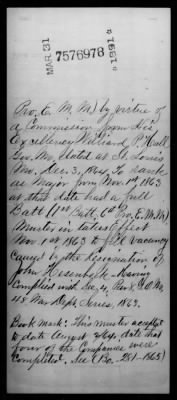 MAR 31
7576978
1891
Pro. E. M. M.) by virtue of
a Commission from His
Excellency Willard P. Hall
Gov. Mo. dated at St. Louis
Mo. Dec. 3, 1864. To rank
as Major from Nov. 1st 1863
at that date had a full
Batt (1st Batt. 6th Pro. E. M. M.)
Muster in takes Effect
Nov. 1st 1863 to fill vacancy
caused by the resignation of
John Hesenbolt. Having
Complied with Sec. 4, Par. G.O. No.
48 War Dept. Series, 1863.
Book mark: This muster accepted
to date August 26/64, date that
four of the Companies were
Completed. See (Bo. 281-1865)